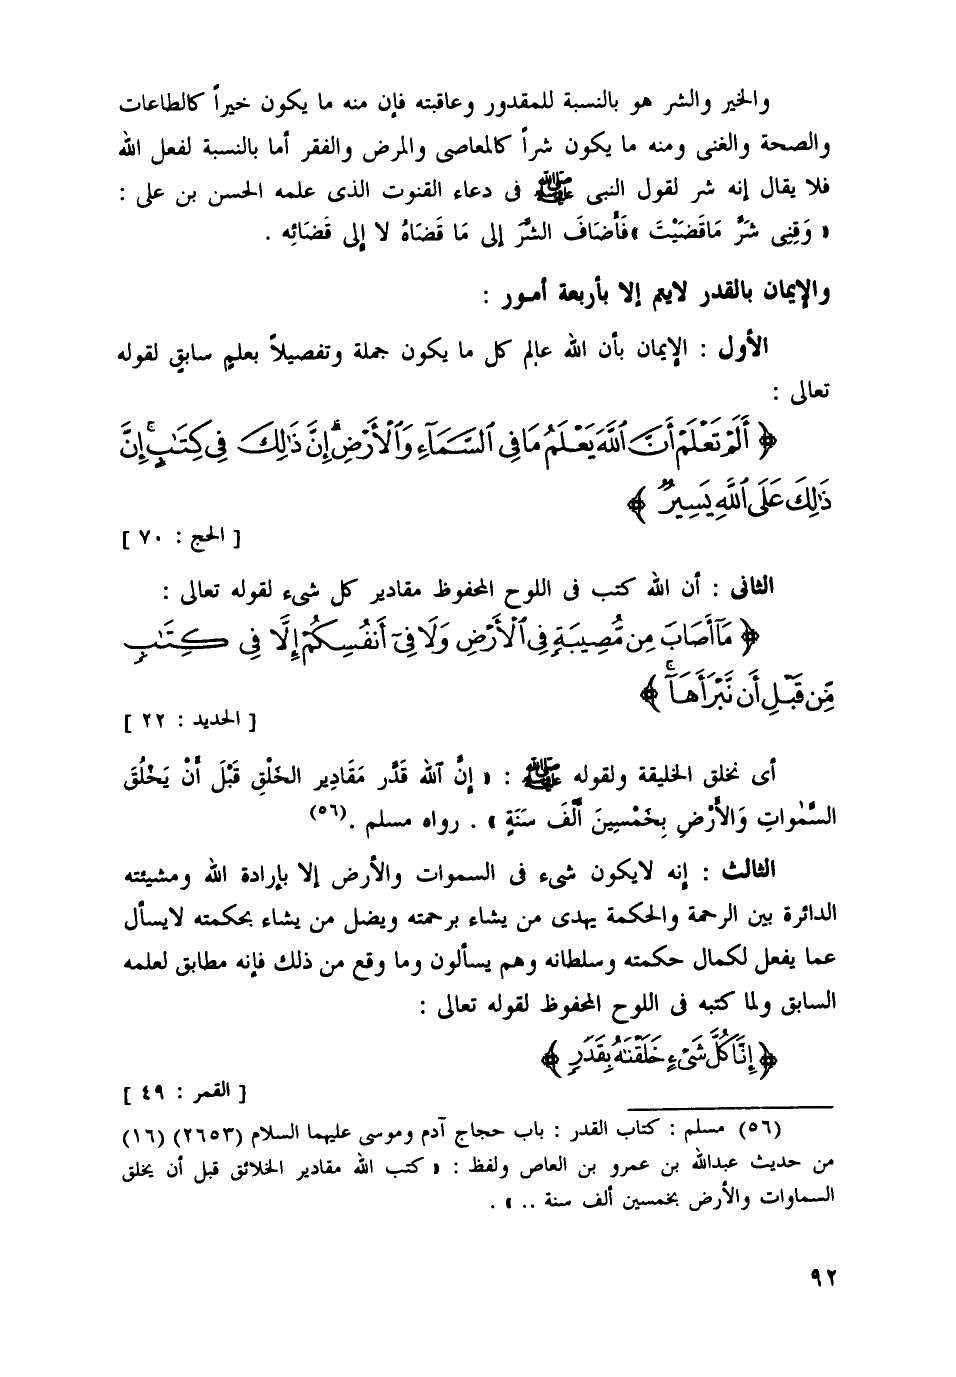 والخير والشر هو بالنسبة للمقدور وعاقبته فإن منه ما يكون خيراً كالطاعات
والصحة والغنى ومنه ما يكون شراً كالمعاصى والمرض والفقر أما بالنسبة لفعل الله
فلا يقال إنه شر لقول النبى ﷺ فى دعاء القنوت الذى علمه الحسن بن على :
« وَقِنِى شَرَّ مَاقَضَيْتَ » فَأَضَافَ الشَّرَّ إلى مَا قَضَاهُ لا إلى قَضَائِه .
والإيمان بالقدر لايتم إلا بأربعة أمـور :
الأول : الإيمان بأن الله عالِم كل ما يكون جملة وتفصيلاً بعلمٍ سابقٍ لقوله
تعالى :
﴿ أَلَمْ تَعْلَمْ أَنَّ ٱللَّهَ يَعْلَمُ مَا فِى ٱلسَّمَآءِ وَٱلْأَرْضِ ۗ إِنَّ ذَٰلِكَ فِى كِتَٰبٍ ۚ إِنَّ
ذَٰلِكَ عَلَى ٱللَّهِ يَسِيرٌ ﴾
[ الحج : ٧٠ ]
الثانى : أن الله كتب فى اللوح المحفوظ مقادير كل شىء لقوله تعالى :
﴿ مَآ أَصَابَ مِن مُّصِيبَةٍ فِى ٱلْأَرْضِ وَلَا فِىٓ أَنفُسِكُمْ إِلَّا فِى كِتَٰبٍ
مِّن قَبْلِ أَن نَّبْرَأَهَآ ۚ ﴾
[ الحديد : ٢٢ ]
أى نخلق الخليقة ولقوله ﷺ : « إِنَّ ٱلله قَدَّر مَقَادِير الخَلْقِ قَبْلَ أَنْ يَخْلُقَ
السَّمٰواتِ وَالأَرْضِ بِخَمْسِينَ أَلْفَ سَنَةٍ » . رواه مسلم .(٥٦)
الثالث : إنه لايكون شىء فى السموات والأرض إلا بإرادة الله ومشيئته
الدائرة بين الرحمة والحكمة يهدى من يشاء برحمته ويضل من يشاء بحكمته لايسأل
عما يفعل لكمال حكمته وسلطانه وهم يسألون وما وقع من ذلك فإنه مطابق لعلمه
السابق ولما كتبه فى اللوح المحفوظ لقوله تعالى :
﴿ إِنَّا كُلَّ شَىْءٍ خَلَقْنَٰهُ بِقَدَرٍ ﴾
[ القمر : ٤٩ ]
(٥٦) مسلم : كتاب القدر : باب حجاج آدم وموسى عليهما السلام (٢٦٥٣) (١٦)
من حديث عبدالله بن عمرو بن العاص ولفظ : « كتب الله مقادير الخلائق قبل أن يخلق
السماوات والأرض بخمسين ألف سنة .. » .
٩٢